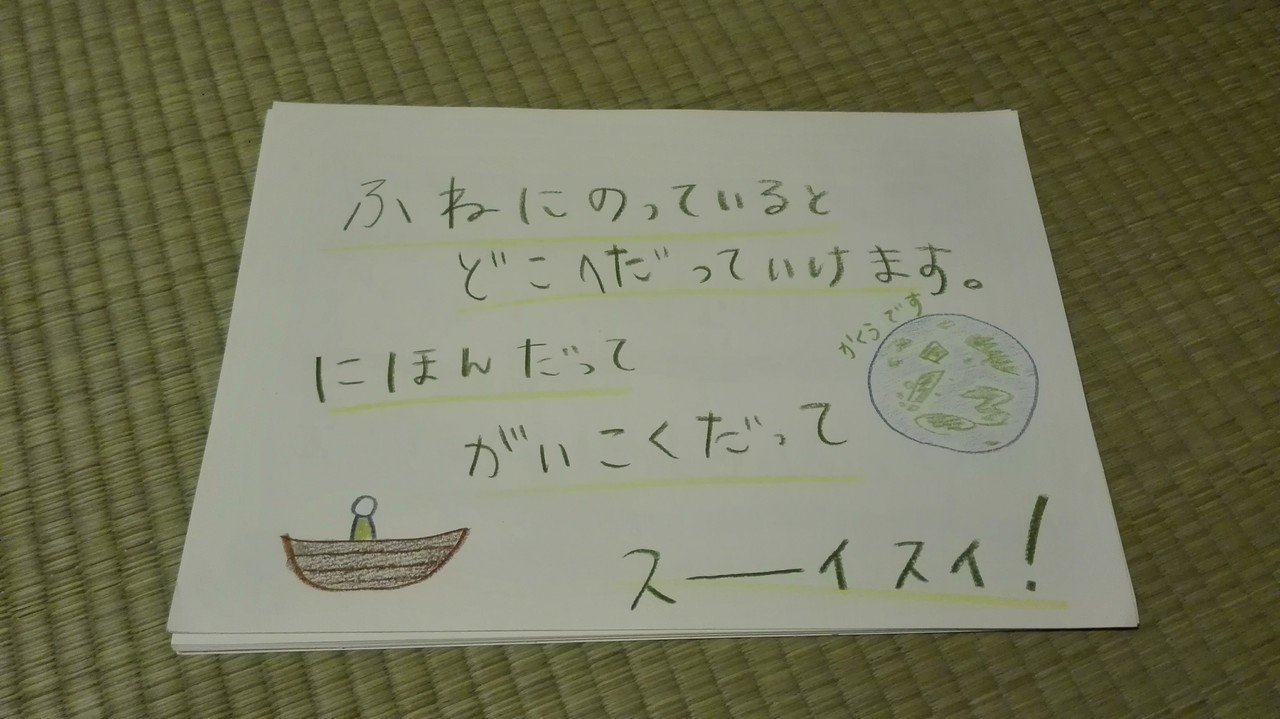 ふねにのっていると
どこへだっていけます。
にほんだって
がいこくだって
スーイスイ!
かくうです